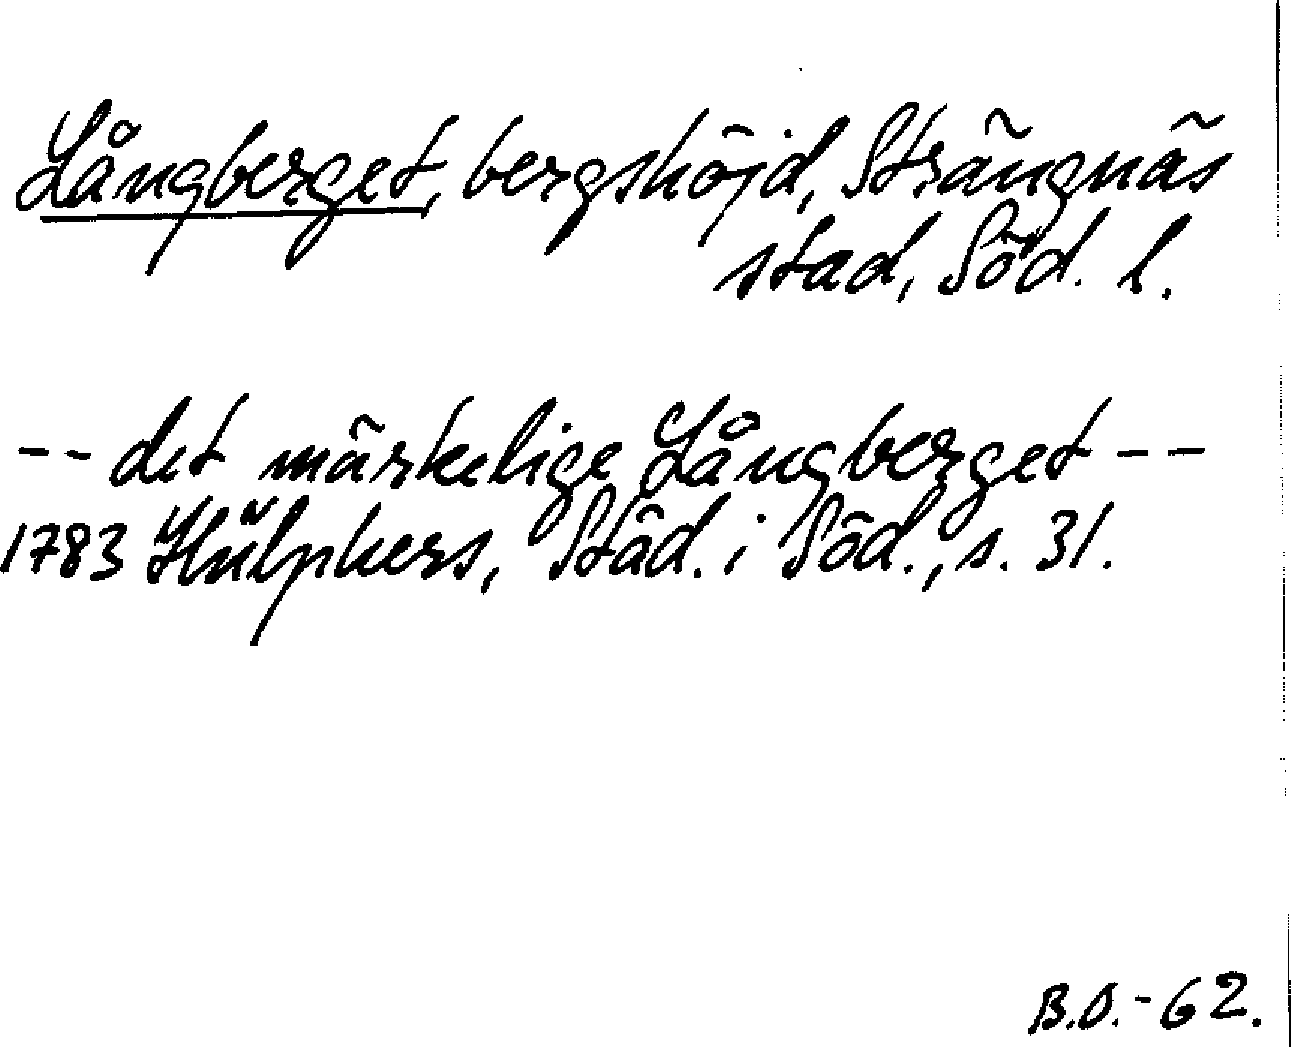 Långberget, bergshöjd, Strängnäs
stad, Söd. l.
-- det märkelige Långberget --
1783 Hülphers, Städ. i Söd., s. 31.
B.O.-62.